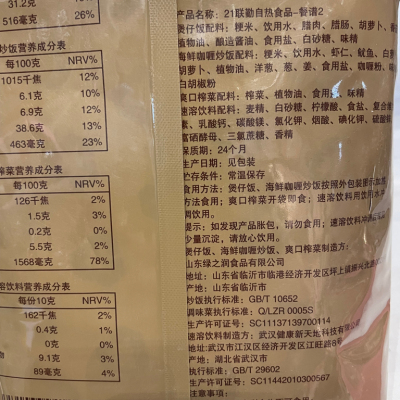 31.2克 10%
516毫克 26%
炒饭营养成分表
每100克 NRV%
1015千焦 12%
6.1克 10%
6.9克 12%
38.6克 13%
463毫克 23%
榨菜营养成分表
每100克 NRV%
126千焦 2%
1.5克 3%
0.2克 0%
5.5克 2%
1568毫克 78%
溶饮料营养成分表
每份10克 NRV%
162千焦 2%
0.4克 1%
0克 0%
9.1克 3%
89毫克 4%
产品名称:21联勤自热食品-
煲仔饭配料:粳米、饮用水、腊肉、腊肠、胡萝卜、
植物油、酿造酱油、食用盐、白砂糖、味精
海鲜咖喱炒饭配料:粳米、饮用水、虾仁、鱿鱼、白
胡萝卜、植物油、洋葱、葱、姜、食用盐、咖喱粉、
白胡椒粉
爽口榨菜配料:榨菜、植物油、食用盐、味精
速溶饮料配料:麦精、白砂糖、柠檬酸、食盐、复合维
素、乳酸钙、碳酸镁、氯化钾、烟酸、碘化钾、硫酸
富硒酵母、三氯蔗糖、香精
保质期:24个月
生产日期:见包装
贮存条件:常温保存
食用方法:煲仔饭、海鲜咖喱炒饭按照外包装提示加热
方法食用;爽口榨菜开袋即食;速溶饮料用饮用水冲
调饮用。
提示:如发现产品胀包,请勿食用;速溶饮料冲
少量沉淀,请放心饮用。
煲仔饭、海鲜咖喱炒饭、爽口榨菜制造方:
山东绿之润食品有限公司
地址:山东省临沂市临港经济开发区坪上镇
产地:山东省临沂市
炒饭执行标准:GB/T 10652
调味菜执行标准:Q/LZR 0005S
生产许可证号:SC11137139700114
速溶饮料制造方:武汉健康新天地科技有限公司
地址:武汉市江汉区经济开发区江旺路8号
产地:湖北省武汉市
执行标准:GB/T 29602
生产许可证号:SC11442010300567
注意事项: